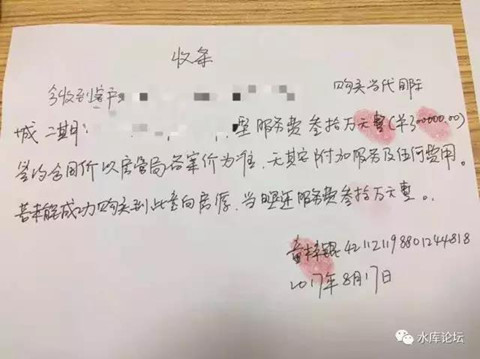 收条
今收到客户 购买当代国际
城二期: 型服务费叁拾万元整(¥300000.00)
签约合同价以房管局备案价为准,无其它附加服务及任何费用。
若未能成功购买到此意向房源,当日退还服务费叁拾万元整。
421121198801244818
2017年8月17日
水库论坛